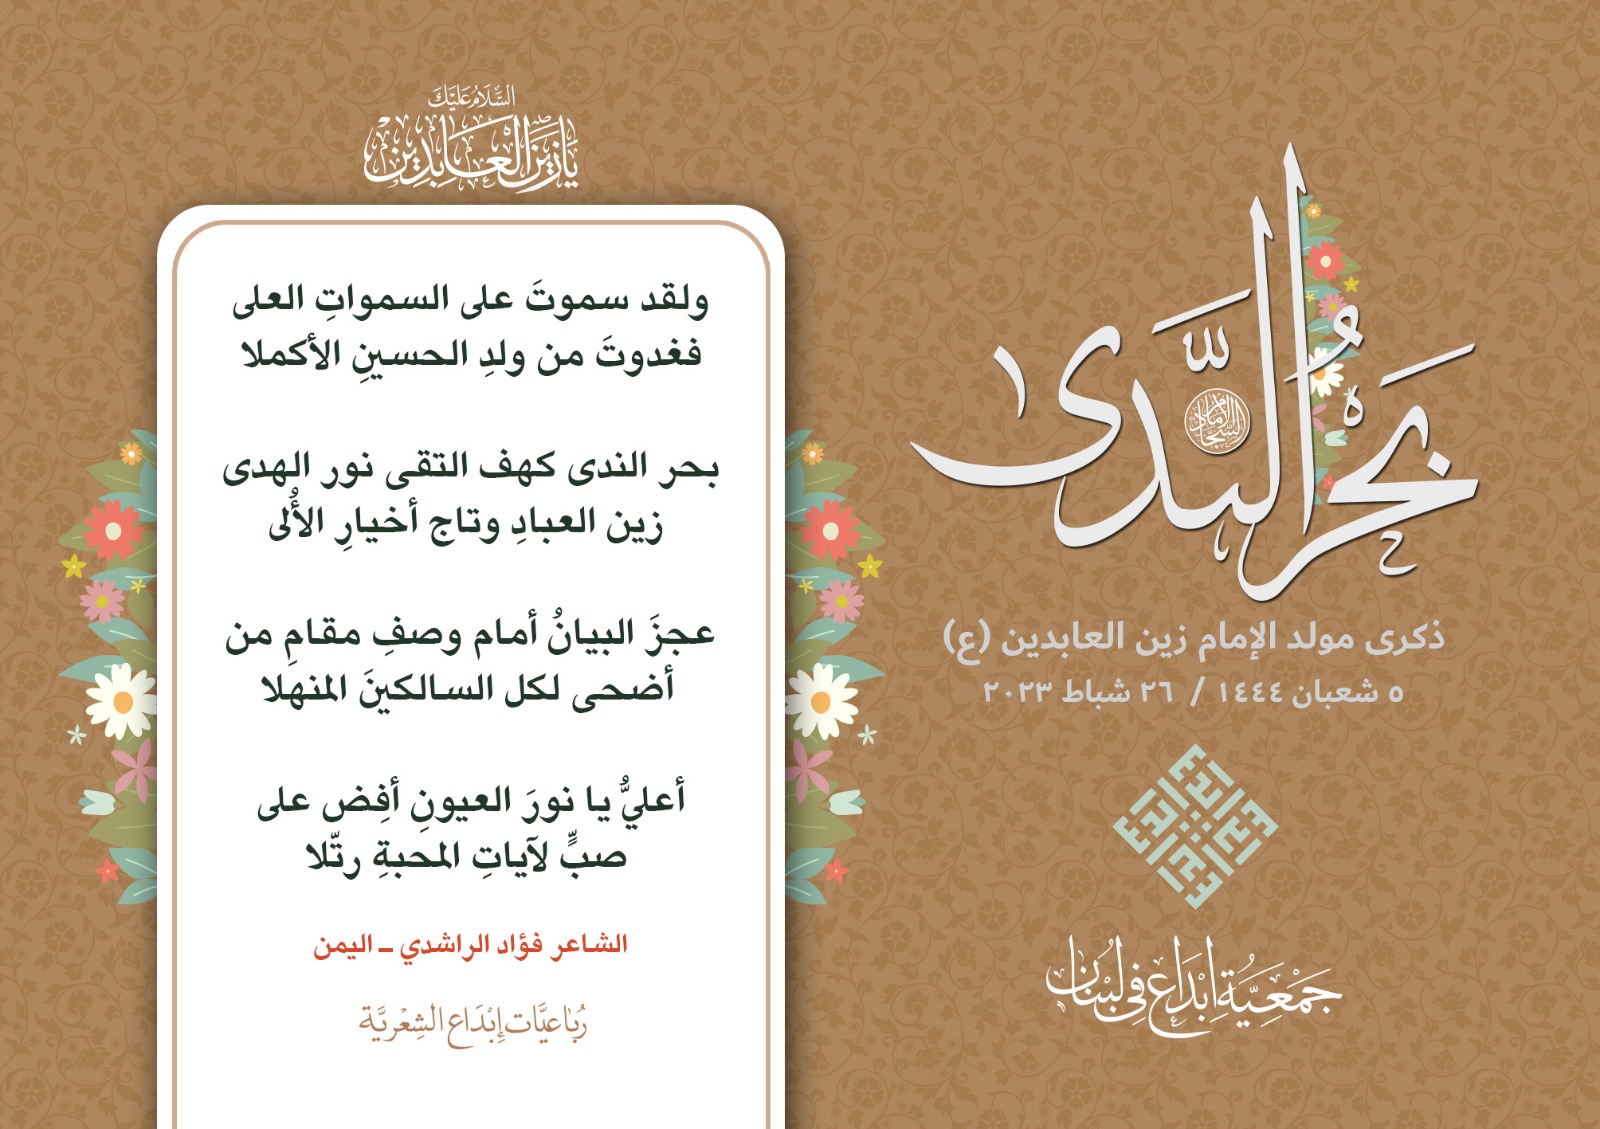 بَحْرُ النَّدَى
الإمام السجاد
ذكرى مولد الإمام زين العابدين (ع)
٥ شعبان ١٤٤٤ / ٢٦ شباط ٢٠٢٣
إبداع إبداع إبداع إبداع
جَمْعِيَّة إِبْدَاع فِي لُبْنَان
السَّلَامُ عَلَيْكَ
يَا زَيْنَ الْعَابِدِين
ولقد سموتَ على السمواتِ العلى
فغدوتَ من ولدِ الحسينِ الأكملا
بحر الندى كهف التقى نور الهدى
زين العبادِ وتاج أخيارِ الأُلى
عجزَ البيانُ أمام وصفِ مقامِ من
أضحى لكل السالكينَ المنهلا
أعليُّ يا نورَ العيونِ أفِض على
صبٍّ لآياتِ المحبةِ رتّلا
الشاعر فؤاد الراشدي - اليمن
رُبَاعيَّات إِبْدَاع الشِعْريَّة